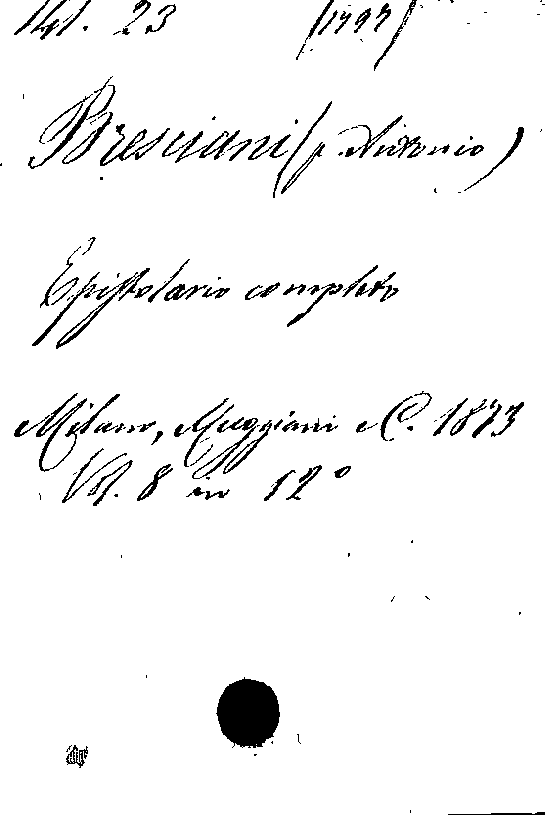 23 (1797)
Bresciani (p. Antonio)
Epistolario completo
Milano, Muggiani e C. 1873
Vol. 8 in 12°